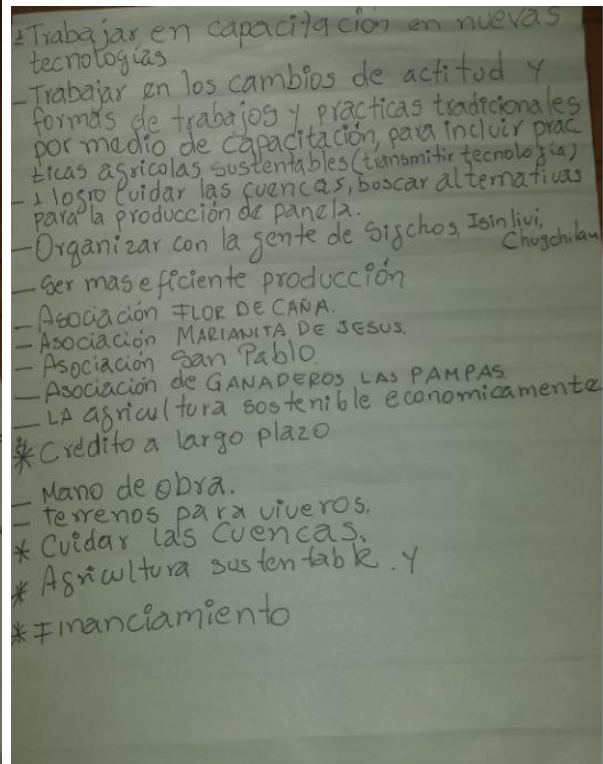 - Trabajar en capacitación en nuevas
tecnologías
- Trabajar en los cambios de actitud y
formas de trabajos y practicas tradicionales
por medio de capacitación, para incluir prac
ticas agricolas sustentables (transmitir tecnologia)
- 1 logro cuidar las cuencas, boscar alternativas
para la producción de panela.
- Organizar con la gente de Sigchos, Isinlivi,
Chugchilan
- Ser mas eficiente producción
- Asociación FLOR DE CAÑA.
- Asociación MARIANITA DE JESUS.
- Asociación San Pablo.
- Asociación de GANADEROS LAS PAMPAS.
- LA agricultura sostenible economicamente
* Crédito a largo plazo
- Mano de obra.
- terrenos para viveros.
* Cuidar las cuencas.
* Agricultura sustentable. Y
* Financiamiento